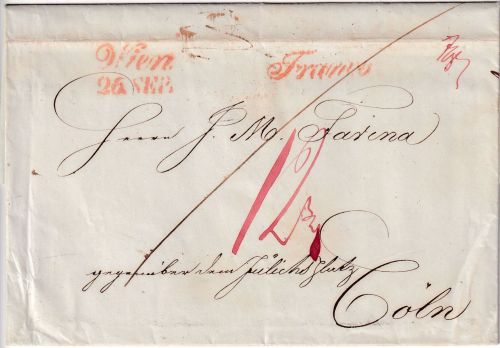 Wien
26. SEP.
Franco
Herrn J. M. Farina
12
gegenüber dem Jülichsplatz
Cöln